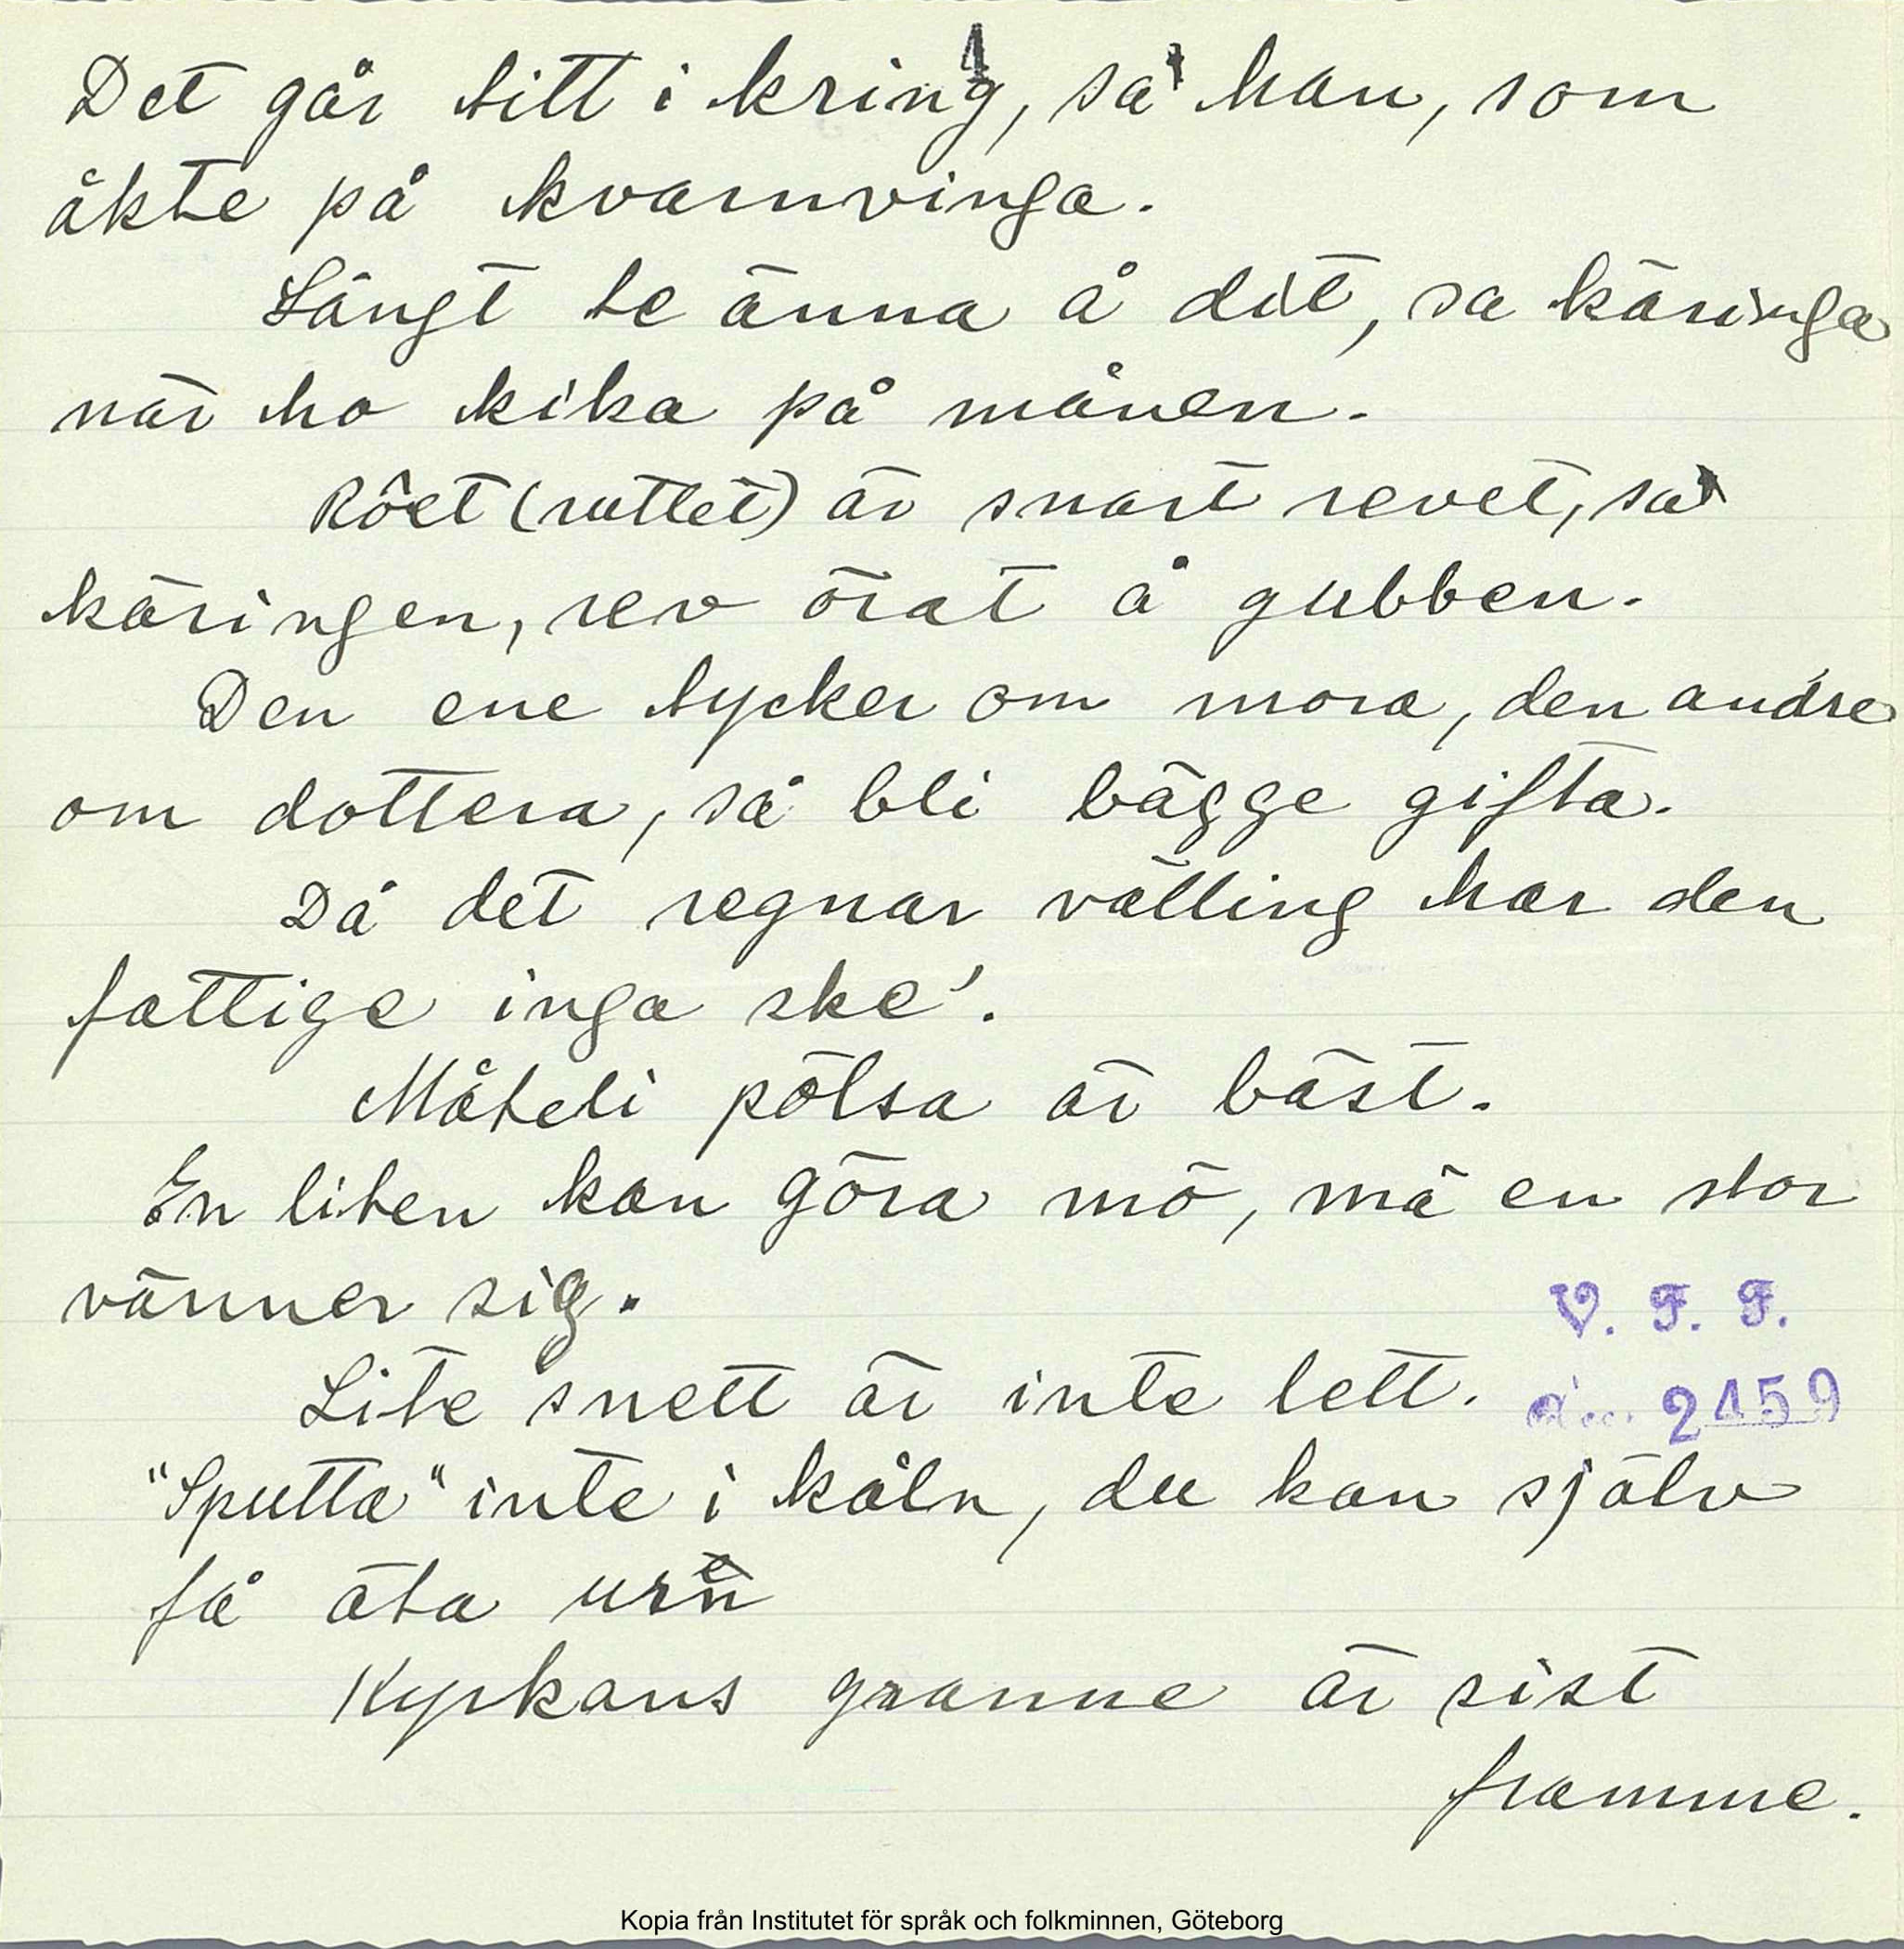 4
Det går titt i kring, sa' han, som
åkte på kvarnvinga.
Långt te änna å dit, sa käringa
när ho kika på månen.
Rôet (ruttet) är snart revet, sa
käringen, rev örat å gubben.
Den ene tycker om mora, den andre
om dottera, så bli bägge gifta.
Då det regnar välling har den
fattige inga ske'.
Måteli pölsa är bäst.
En liten kan göra mö, mä en stor
vänner sig.
V. F. F.
Lite snett är inte lett.
2459
"Sputta" inte i kåln, du kan själv
få äta
Kyrkans granne är sist
framme.
Kopia från Institutet för språk och folkminnen, Göteborg